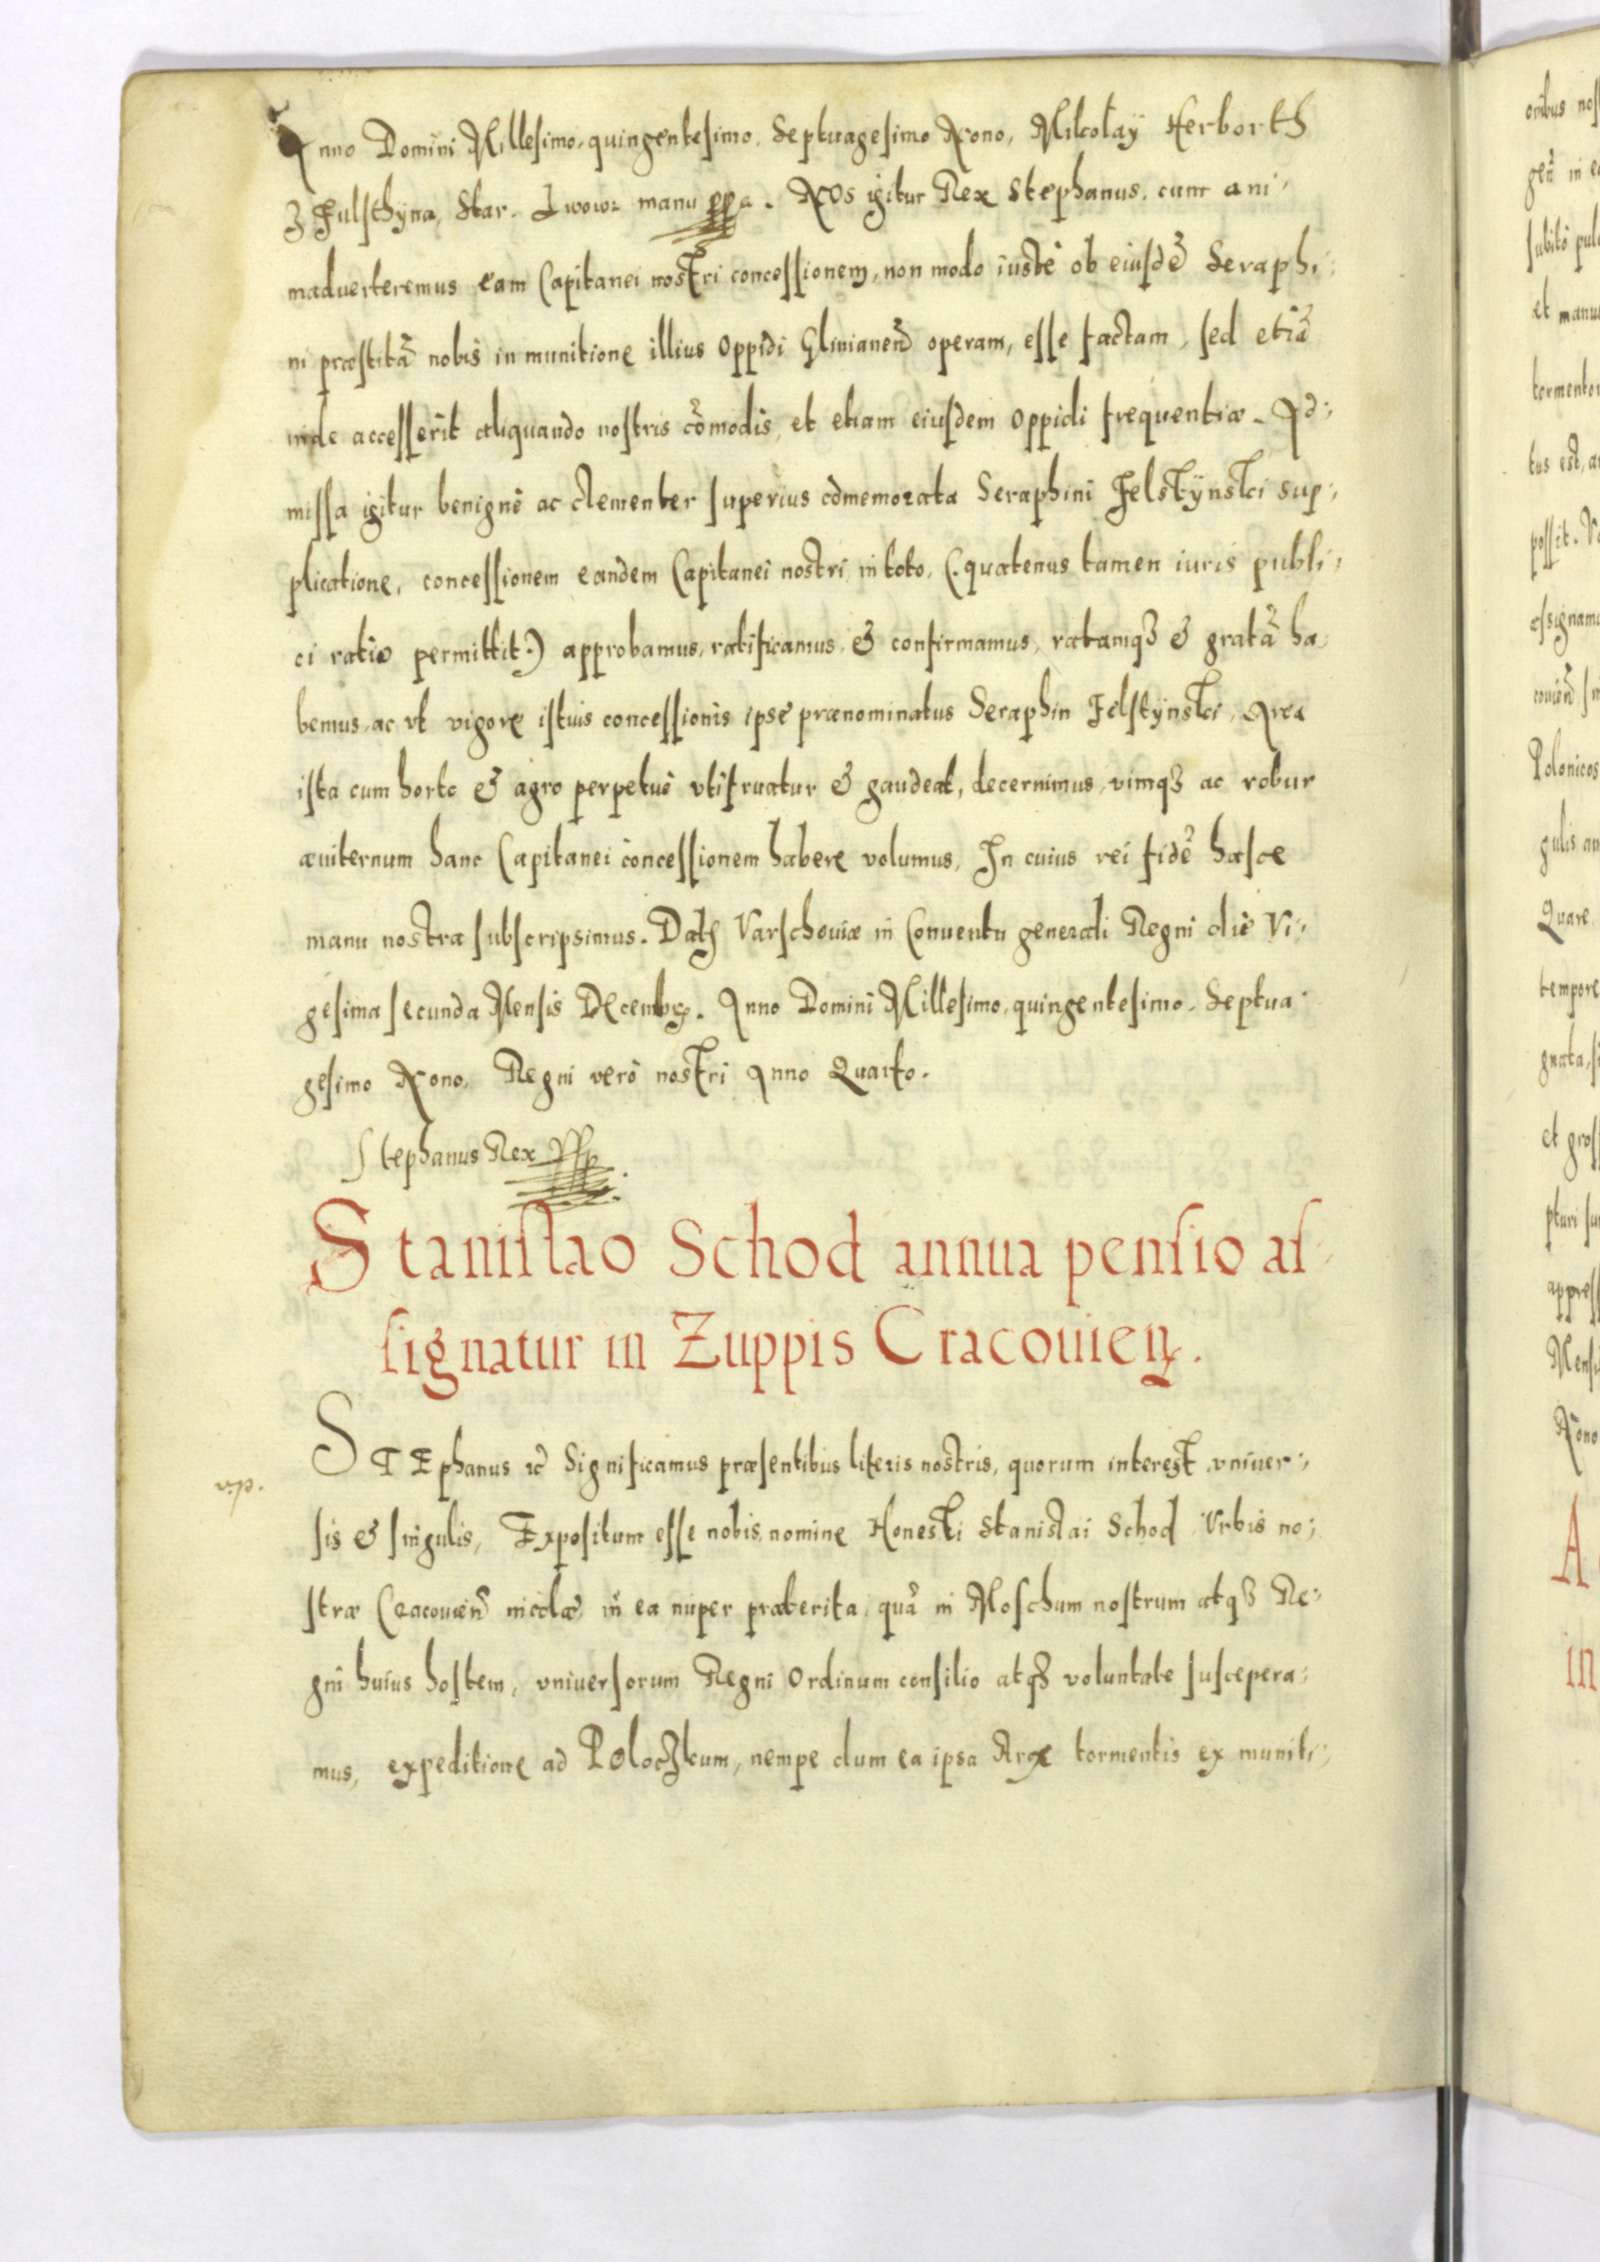 Anno Domini Millesimo, quingentesimo, Septuagesimo Nono, Mikolaÿ Herborth
z Fulsthÿna, Star. Lwow: manu ppa. NOs igitur Rex Stephanus, cum ani:
maduerteremus eam Capitanei nostri concessionem, non modo iustè ob eiusdẽ Seraphi:
ni præstitã nobis in munitione illius Oppidi Glinianeñ operam, esse factam, sed etiã
inde accesserit aliquando nostris cõmodis, et etiam eiusdem Oppidi frequentiæ. Ad:
missa igitur benignè ac clementer superius cõmemorata Seraphini Felstÿnski sup:
plicatione, concessionem eandem Capitanei nostri, in toto, (:quatenus tamen iuris publi:
ci ratio permittit:) approbamus, ratificamus, & confirmamus, ratamqз & gratã ha:
bemus, ac vt vigore istius concessionis ipse prænominatus Seraphin Felstÿnski, Area
ista cum horto & agro perpetuè vtifruatur & gaudeat, decernimus, vimqз ac robur
æuiternum hanc Capitanei concessionem habere volumus, In cuius rei fidẽ hasce
manu nostra subscripsimus. Datꝭ Varschouiæ in Conuentu generali Regni die Vi:
gesima secunda Mensis Decembrꝭ. Anno Domini Millesimo, quingentesimo, Septua:
gesimo Nono, Regni verò nostri Anno Quarto.
Stephanus Rex
Stanislao Schod annua pensio as:
signatur in Zuppis Cracouieñ.
STEphanus ꝛc̃ Significamus præsentibus literis nostris, quorum interest, vniuer:
sis & singulis, Expositum esse nobis, nomine Honesti Stanislai Schod Vrbis no:
stræ Cracouieñ incolæ, in ea nuper præterita, quã in Moschum nostrum atqз Re:
gni huius hostem, vniuersorum Regni Ordinum consilio atqз voluntate suscepera:
mus, expeditione ad Poloczkum, nempe dum ea ipsa Arx tormentis ex muniti: